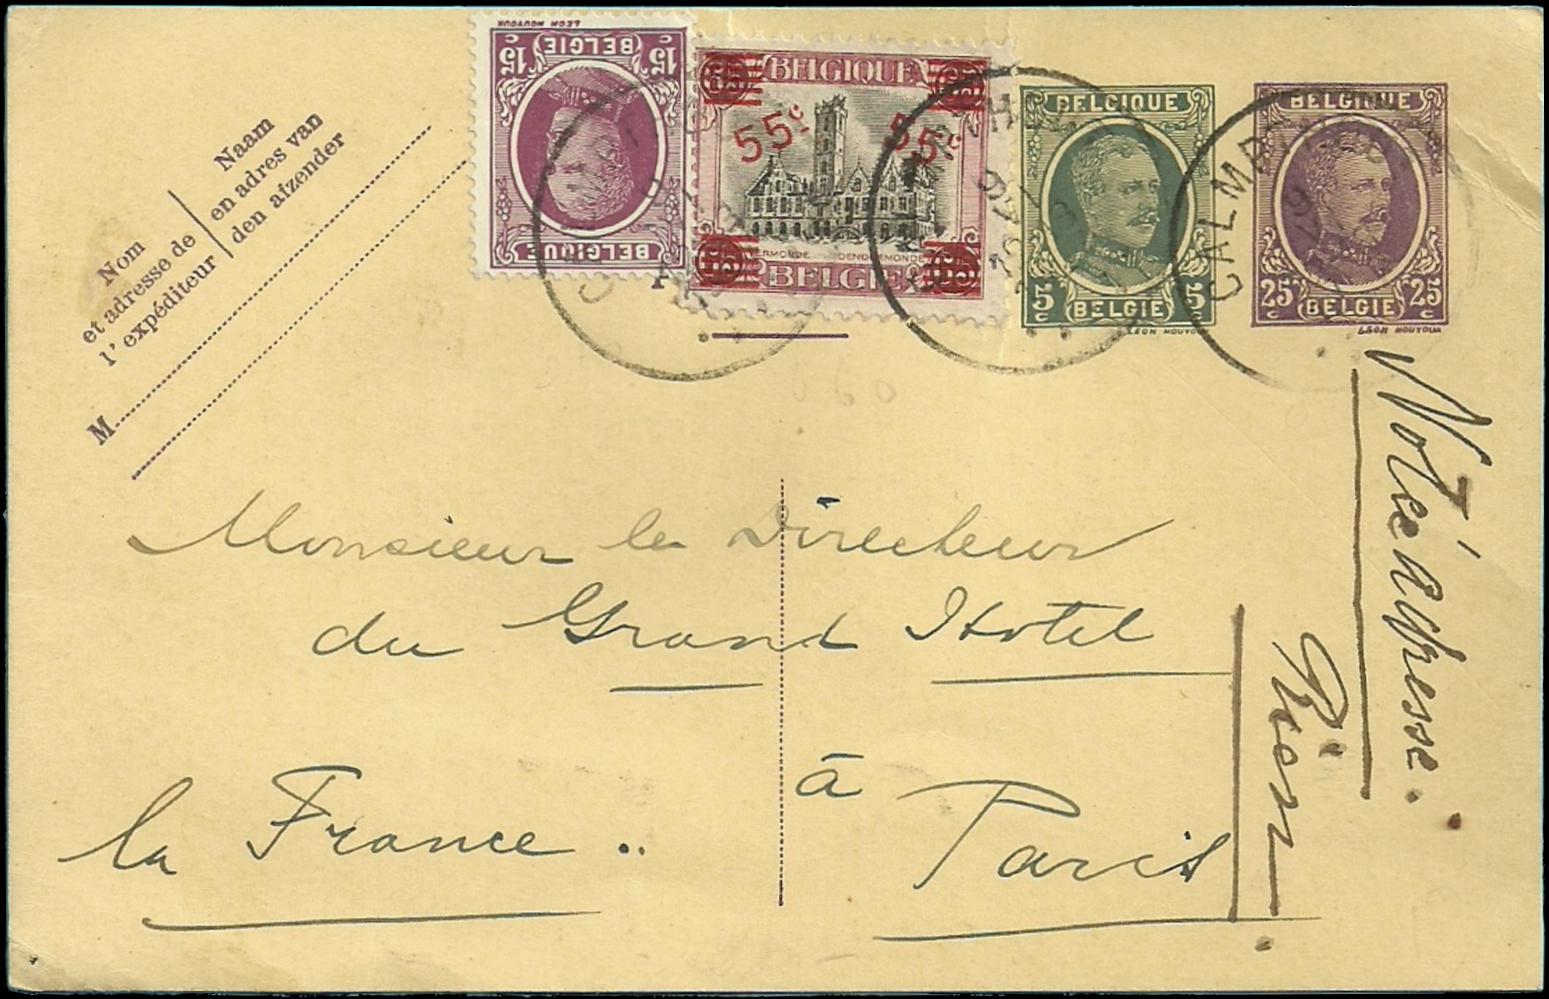 LEON HOUYOUX
15 c BELGIE 15 c
BELGIQUE
BELGIQUE
55c 55c
TERMONDE DENDERMONDE
BELGIE
BELGIQUE
5 c BELGIE 5 c
LEON HOUYOUX
BELGIQUE
25 c BELGIE 25 c
LEON HOUYOUX
CALMPTHOUT
Nom
et adresse de
l'expéditeur
Naam
en adres van
den afzender
M
Monsieur le Directeur
du Grand Hotel
à Paris
la France ..